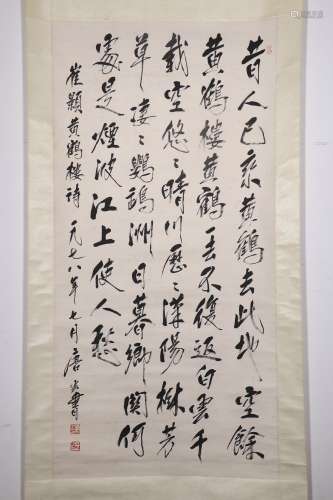 昔人已乘黃鶴去此地空餘
黃鶴樓黃鶴一去不復返白雲千
載空悠々晴川歷々漢陽樹芳
草淒々鸚鵡洲日暮鄉關何
處是煙波江上使人愁
崔顥黃鶴樓詩 一九七八年七月唐書